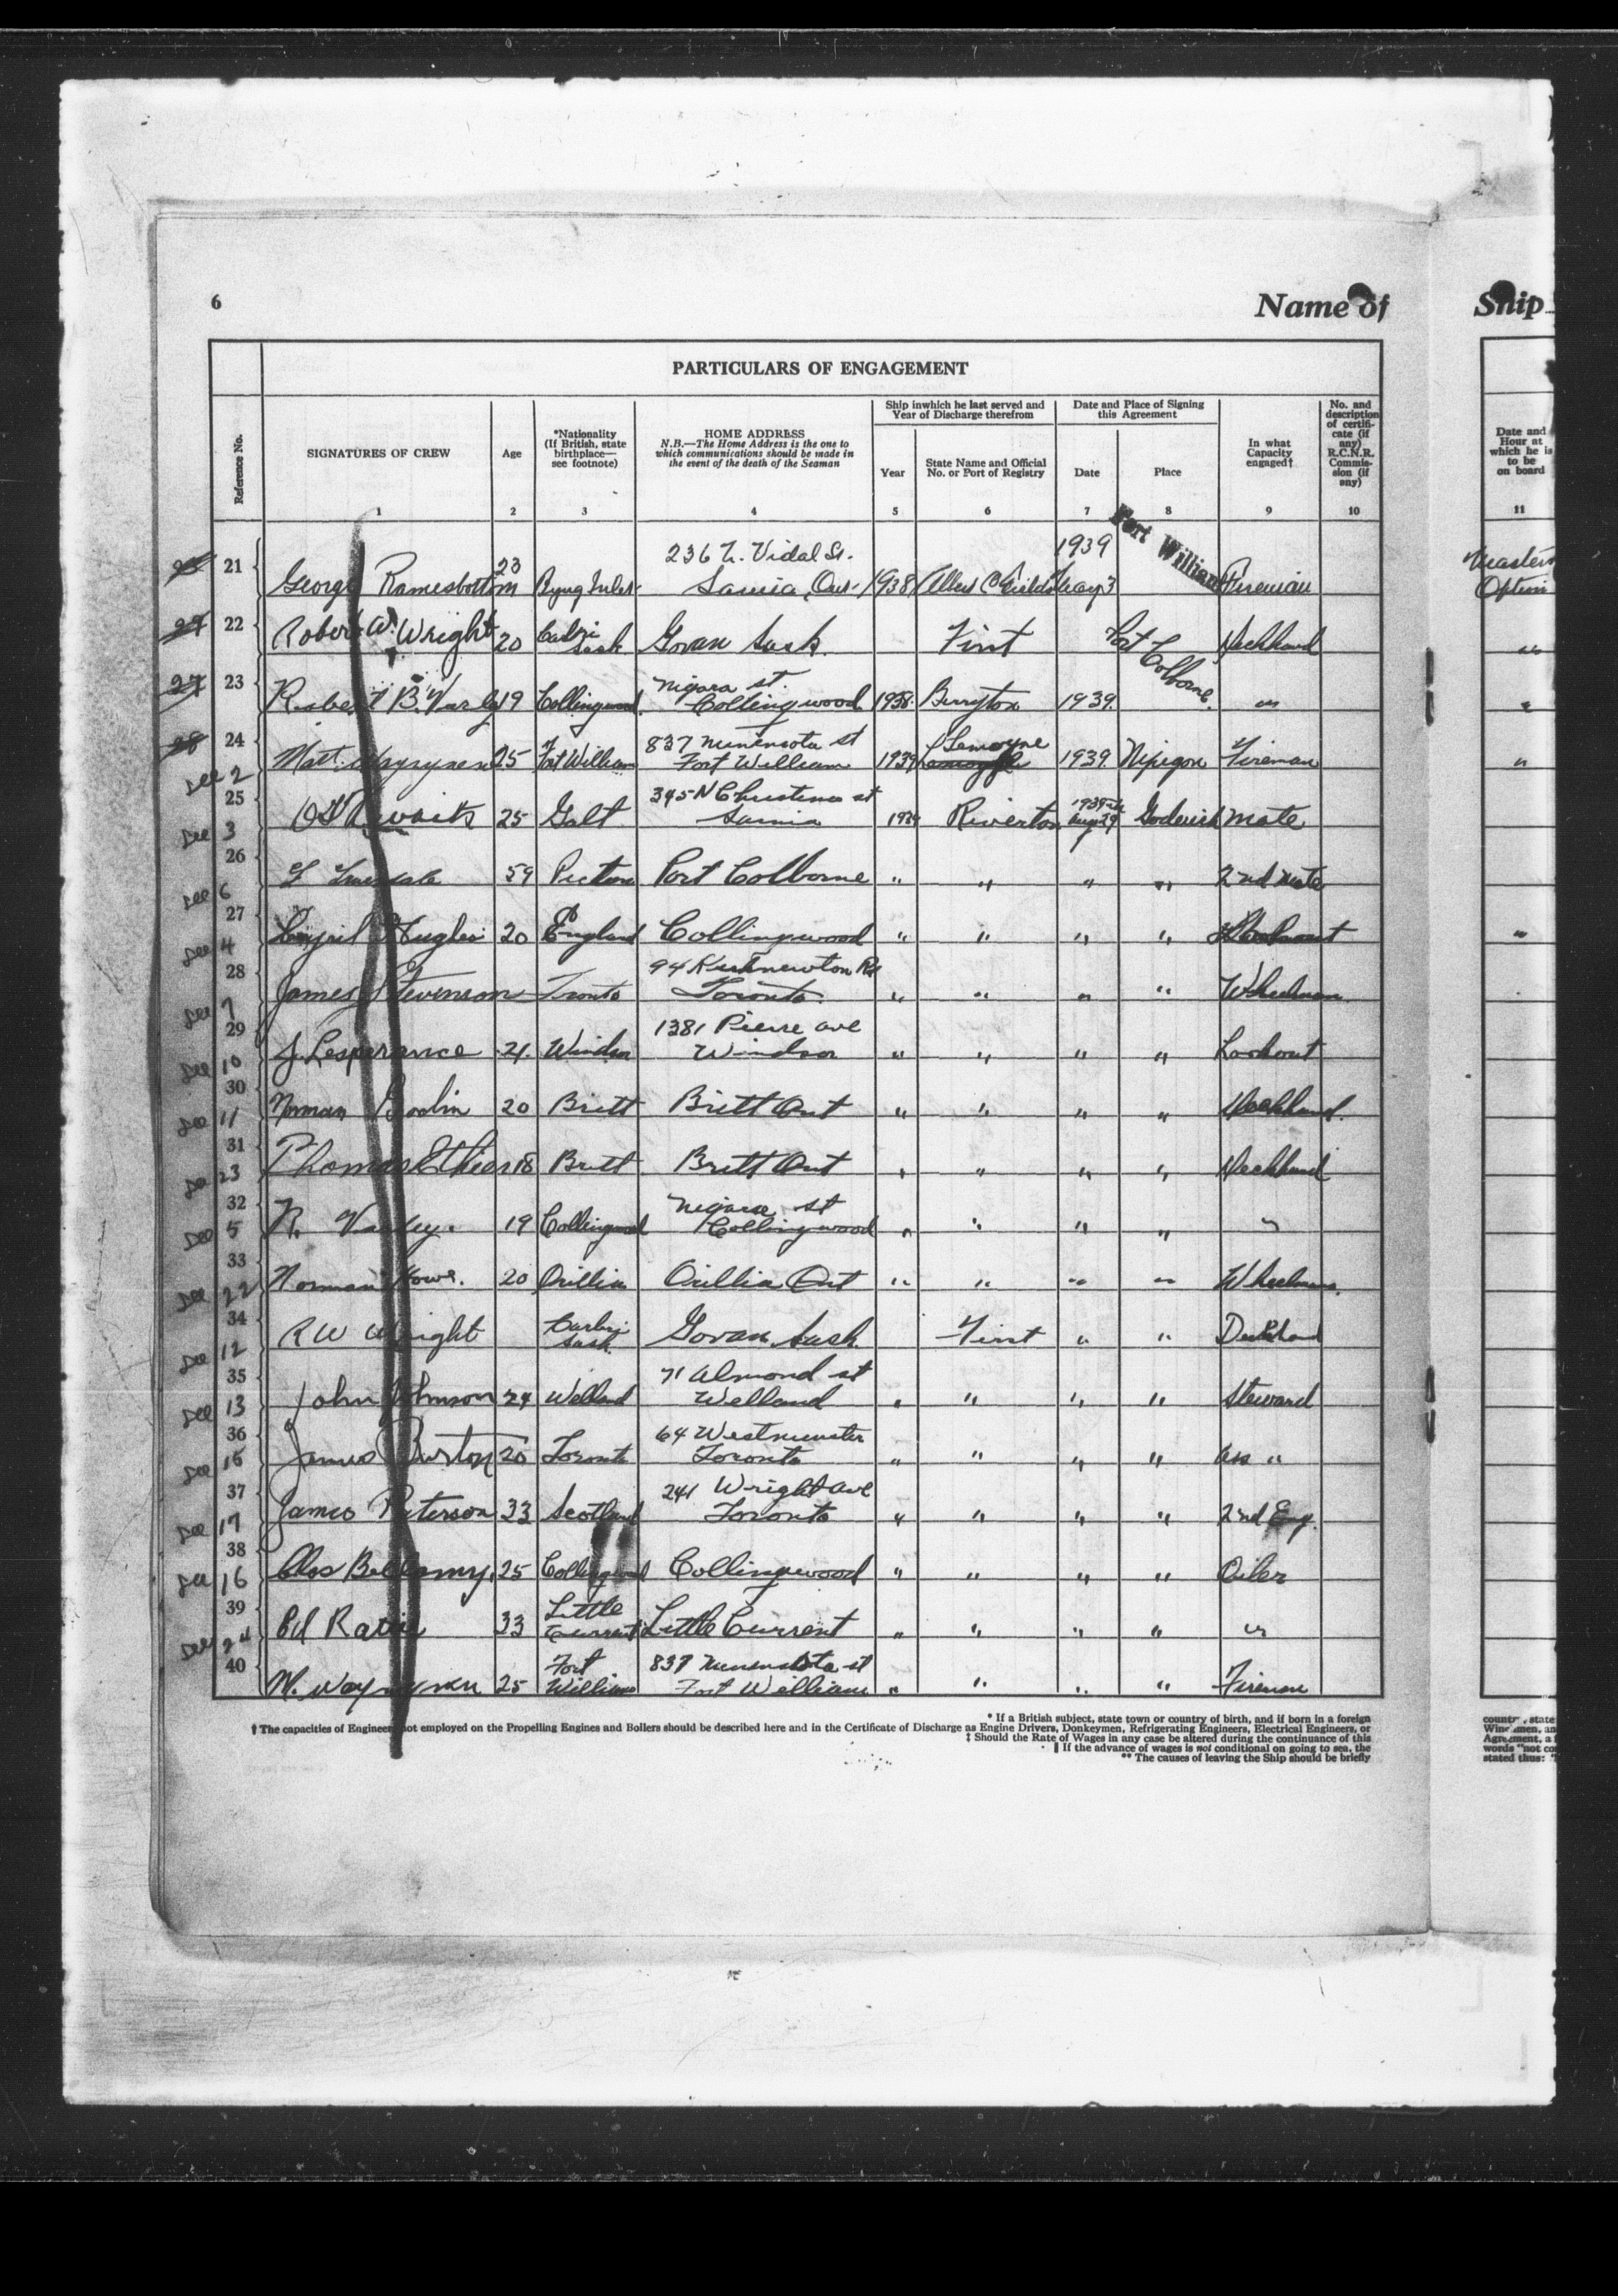 6
Name of
Ship
PARTICULARS OF ENGAGEMENT
Reference No.
SIGNATURES OF CREW
1
Age
2
*Nationality
(If British, state
birthplace—
see footnote)
3
HOME ADDRESS
N.B.—The Home Address is the one to
which communications should be made in
the event of the death of the Seaman
4
Ship in which he last served and
Year of Discharge therefrom
Year
5
State Name and Official
No. or Port of Registry
6
Date and Place of Signing
this Agreement
Date
7
Place
8
In what
Capacity
engaged†
9
No. and
description
of certifi-
cate (if
any)
R.C.N.R.
Commis-
sion (if
any)
10
Date and
Hour at
which he is
to be
on board
11
236 N. Vidal St. 1939 Fort William
21 George Ramesbottom 23 Byng Inlet Sarnia, Ont- 1938 May 3 Fireman
Option
22 Robert W. Wright 20 Sask Govan Sask. First Port Colborne Deckhand "
Niagara st.
23 Robert B. Varley 19 Collingwood Collingwood 1938 Berryton 1939 "
837 Minnesota st Lemoyne
24 Matt. Wayrynen 25 Fort William Fort William 1939 1939 Nipigon Fireman "
See 2
345 N Christina st 1939
25 25 Galt Sarnia 1939 Riverton Aug 29 Goderich Mate
See 3
26 59 Picton Port Colborne " " " " 2nd Mate
See 6
27 Cyril Hughes 20 England Collingwood " " " " "
See 4
94 Rd
28 James Stevenson Toronto Toronto " " " " Wheelman
See 7
1381 Pierre ave
29 J. Lesperance 21 Windsor Windsor " " " " Lookout
See 10
30 Norman 20 Britt Britt Ont " " " " Deckhand.
See 11
31 Thomas Ethier 18 Britt Britt Ont " " " " Deckhand
See 23
Niagara st
32 R. Varley. 19 Collingwood Collingwood " " " " "
See 5
33 Norman Howe. 20 Orillia Orillia Ont " " " " Wheelman.
See 22
34 R W Wright Sask Govan Sask. First " " Deckhand
See 12
71 Almond st
35 John Johnson 24 Welland Welland " " " " Steward
See 13
64 Westminster
36 James Burton 20 Toronto Toronto " " " " ass "
See 15
241 Wright ave
37 James Paterson 33 Scotland Toronto " " " " 2nd Eng.
See 17
38 Chas Bellamy, 25 Collingwood Collingwood " " " " Oiler
See 16
Little
39 Ed 33 Current Little Current " " " " "
See 24
Fort 837 Minnesota st
40 M. Wayrynen 25 William Fort William " " " " Fireman
* If a British subject, state town or country of birth, and if born in a foreign
† The capacities of Engineers not employed on the Propelling Engines and Boilers should be described here and in the Certificate of Discharge as Engine Drivers, Donkeymen, Refrigerating Engineers, Electrical Engineers, or
‡ Should the Rate of Wages in any case be altered during the continuance of this
‖ If the advance of wages is not conditional on going to sea, the
** The causes of leaving the Ship should be briefly
country, state
Agreement, a
words "not co
stated thus: